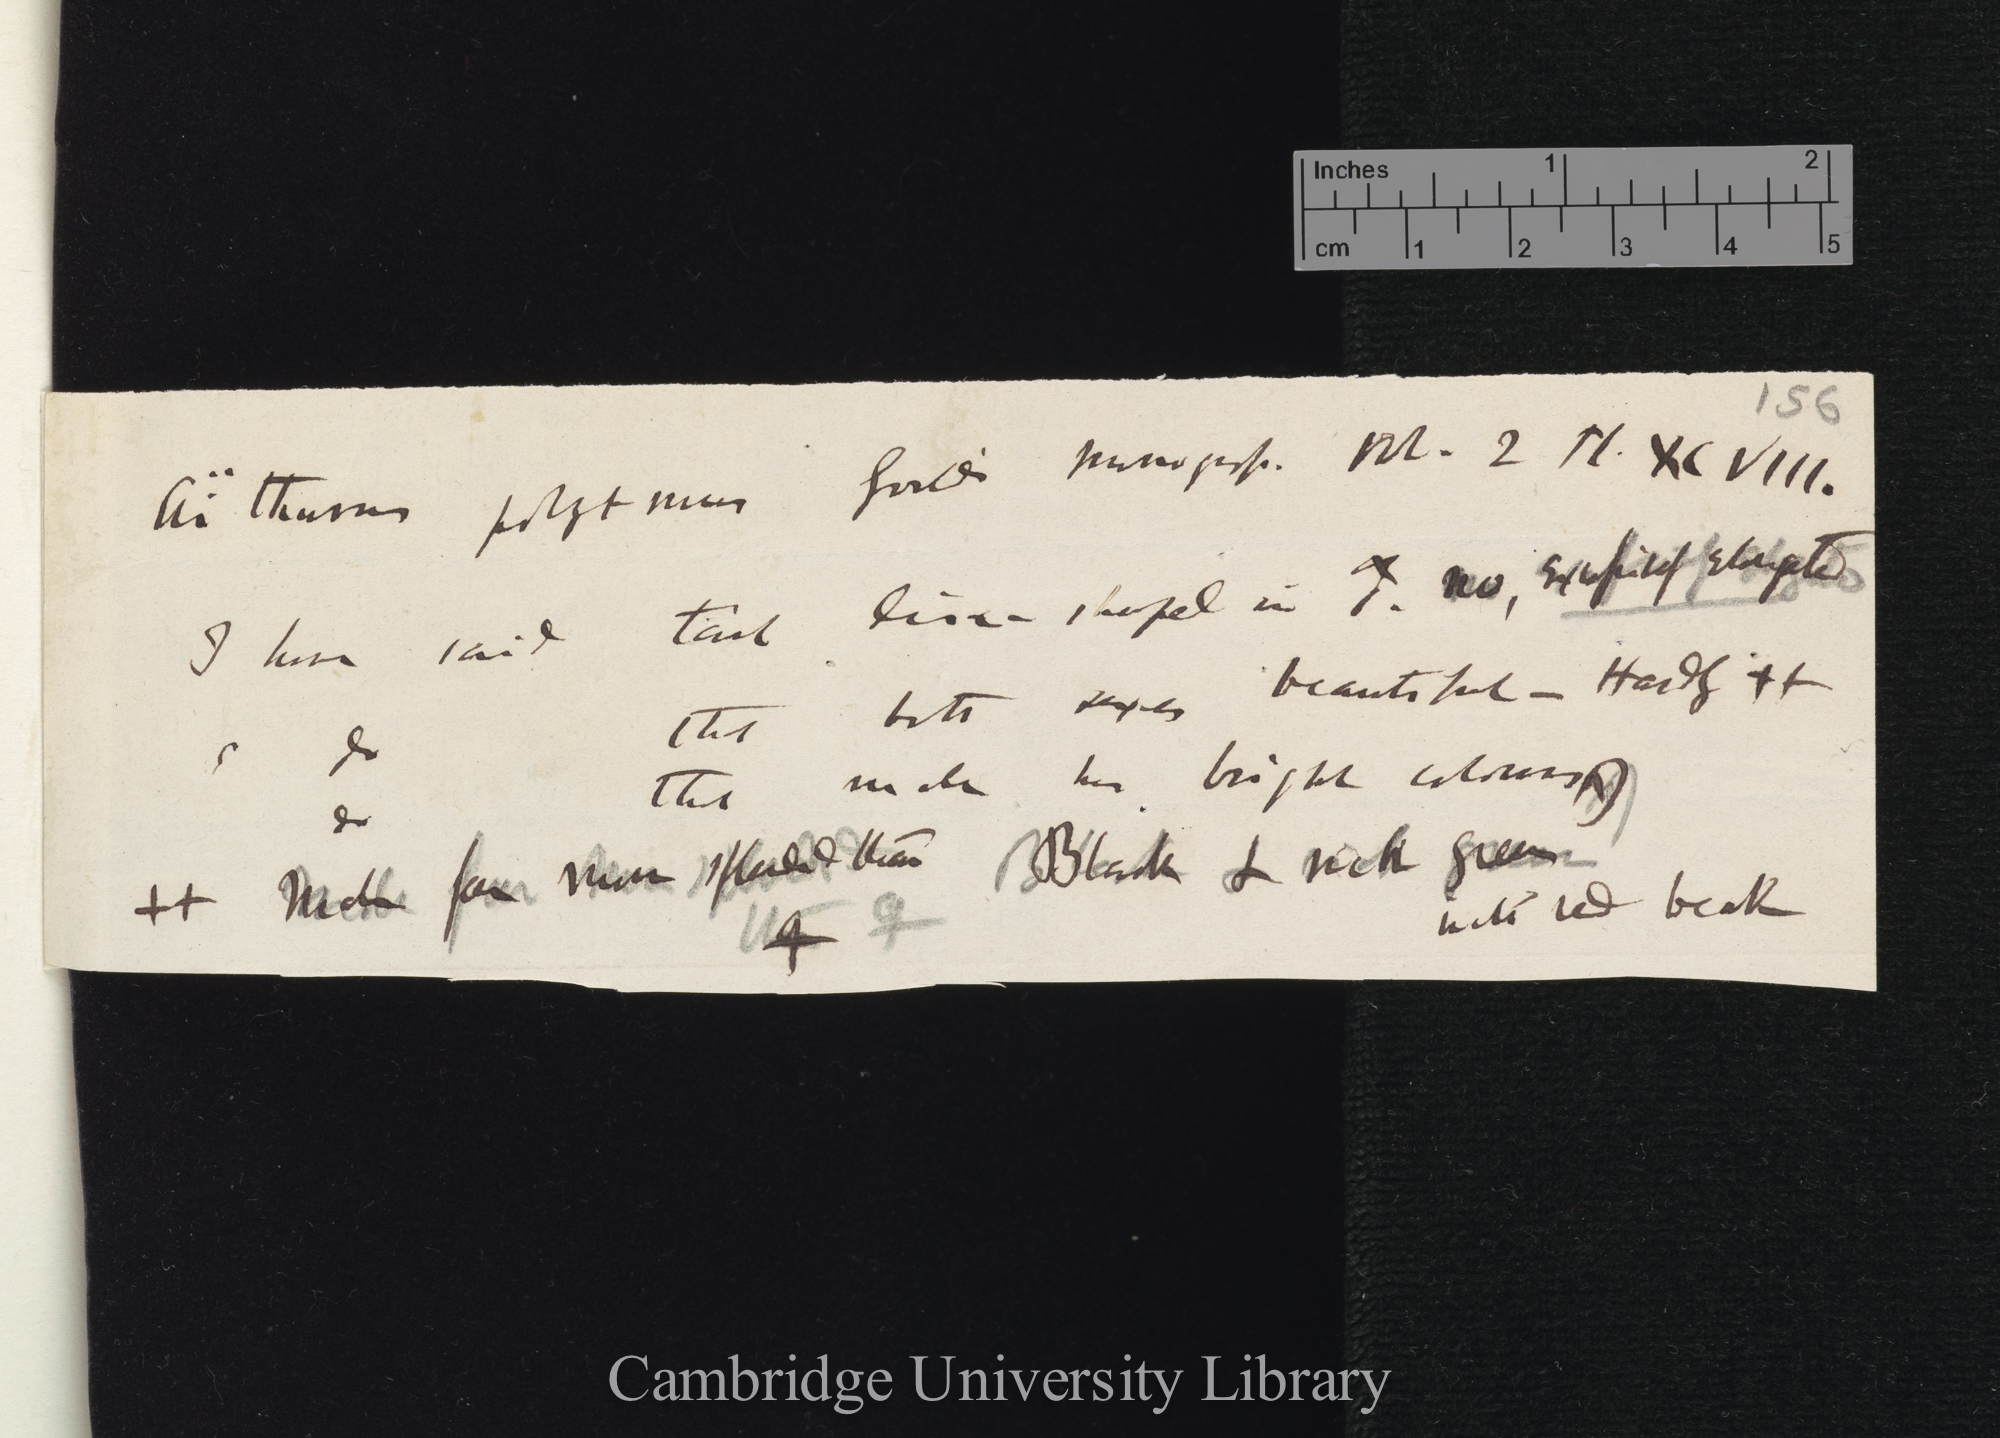 156
Aïthurus polytmus Gould's Monograph. Vol. 2 Pl. XCVIII.
I have said tail disc-shaped in ♂. no, elongated
do that both sexes beautiful — Hardly ++
do that male has bright colours
++ Male far more splendid than ♀ Black & rich green
with red beak
Inches 1 2
cm 1 2 3 4 5
Cambridge University Library